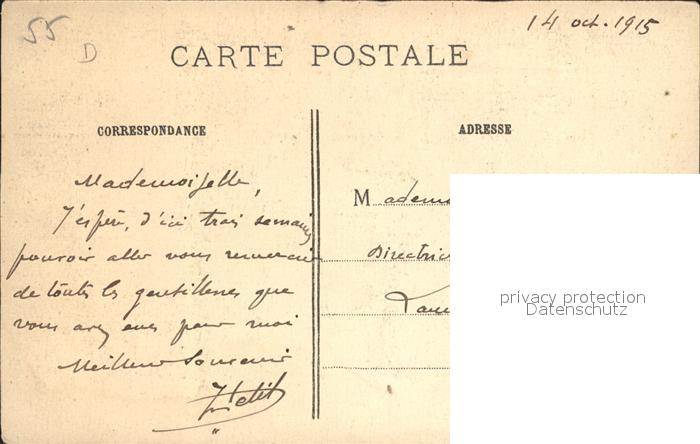 55
D
14 oct. 1915
CARTE POSTALE
CORRESPONDANCE
ADRESSE
Mademoiselle,
J'espère, d'ici trois semaines
pouvoir aller vous remercier
de toutes les gentillesses que
vous avez eues pour moi
Meilleur Souvenir
Madem
Directric
privacy protection
Datenschutz